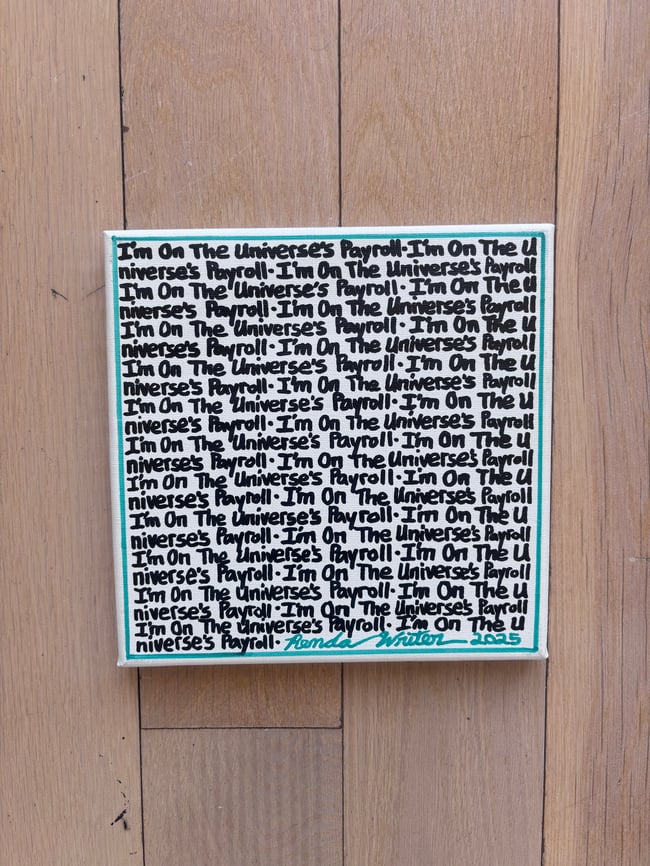 I'm On The Universe's Payroll·I'm On The U
niverse's Payroll·I'm On The Universe's Payroll
I'm On The Universe's Payroll·I'm On The U
niverse's Payroll·I'm On The Universe's Payroll
I'm On The Universe's Payroll·I'm On The U
niverse's Payroll·I'm On The Universe's Payroll
I'm On The Universe's Payroll·I'm On The U
niverse's Payroll·I'm On The Universe's Payroll
I'm On The Universe's Payroll·I'm On The U
niverse's Payroll·I'm On The Universe's Payroll
I'm On The Universe's Payroll·I'm On The U
niverse's Payroll·I'm On The Universe's Payroll
I'm On The Universe's Payroll·I'm On The U
niverse's Payroll·I'm On The Universe's Payroll
I'm On The Universe's Payroll·I'm On The U
niverse's Payroll·I'm On The Universe's Payroll
I'm On The Universe's Payroll·I'm On The U
niverse's Payroll·I'm On The Universe's Payroll
I'm On The Universe's Payroll·I'm On The U
niverse's Payroll·I'm On The Universe's Payroll
I'm On The Universe's Payroll·I'm On The U
niverse's Payroll·Renda Writer 2025